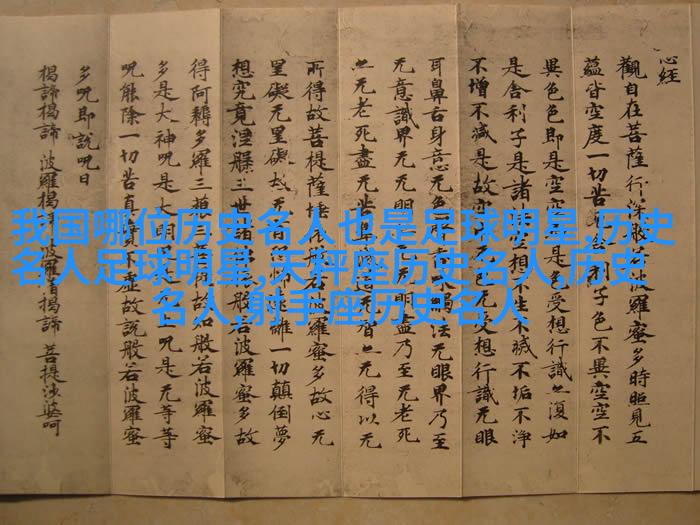 心经
觀自在菩薩行深般若波羅蜜多時照見五
蘊皆空度一切苦舍利子色不異空空不
異色色即是空空是色受想行識亦復如
是舍利子是諸空相不生不滅不垢不淨
不增不減是故空色无受想行識无眼
耳鼻舌身意无色法无眼界乃至
无意識界无无明无明盡乃至无老死
亦无老死盡无苦道无智亦无得以无
所得故菩提薩埵依波羅蜜多故心无
罣礙无罣礙故无怖遠離一切顛倒夢
想究竟涅槃三世諸般若波羅蜜多故
得阿耨多羅三藐三故知般若波羅蜜
多是大神呪是大明呪是无等等
呪能除一切苦真實不虛故說般若波羅蜜
多呪即說呪日
揭諦揭諦 波羅揭諦 波羅僧揭諦 菩提薩婆呵
我国哪位历史名人也是足球明星,历史
名人足球明星,天秤座历史名人,历史
名人,射手座历史名人